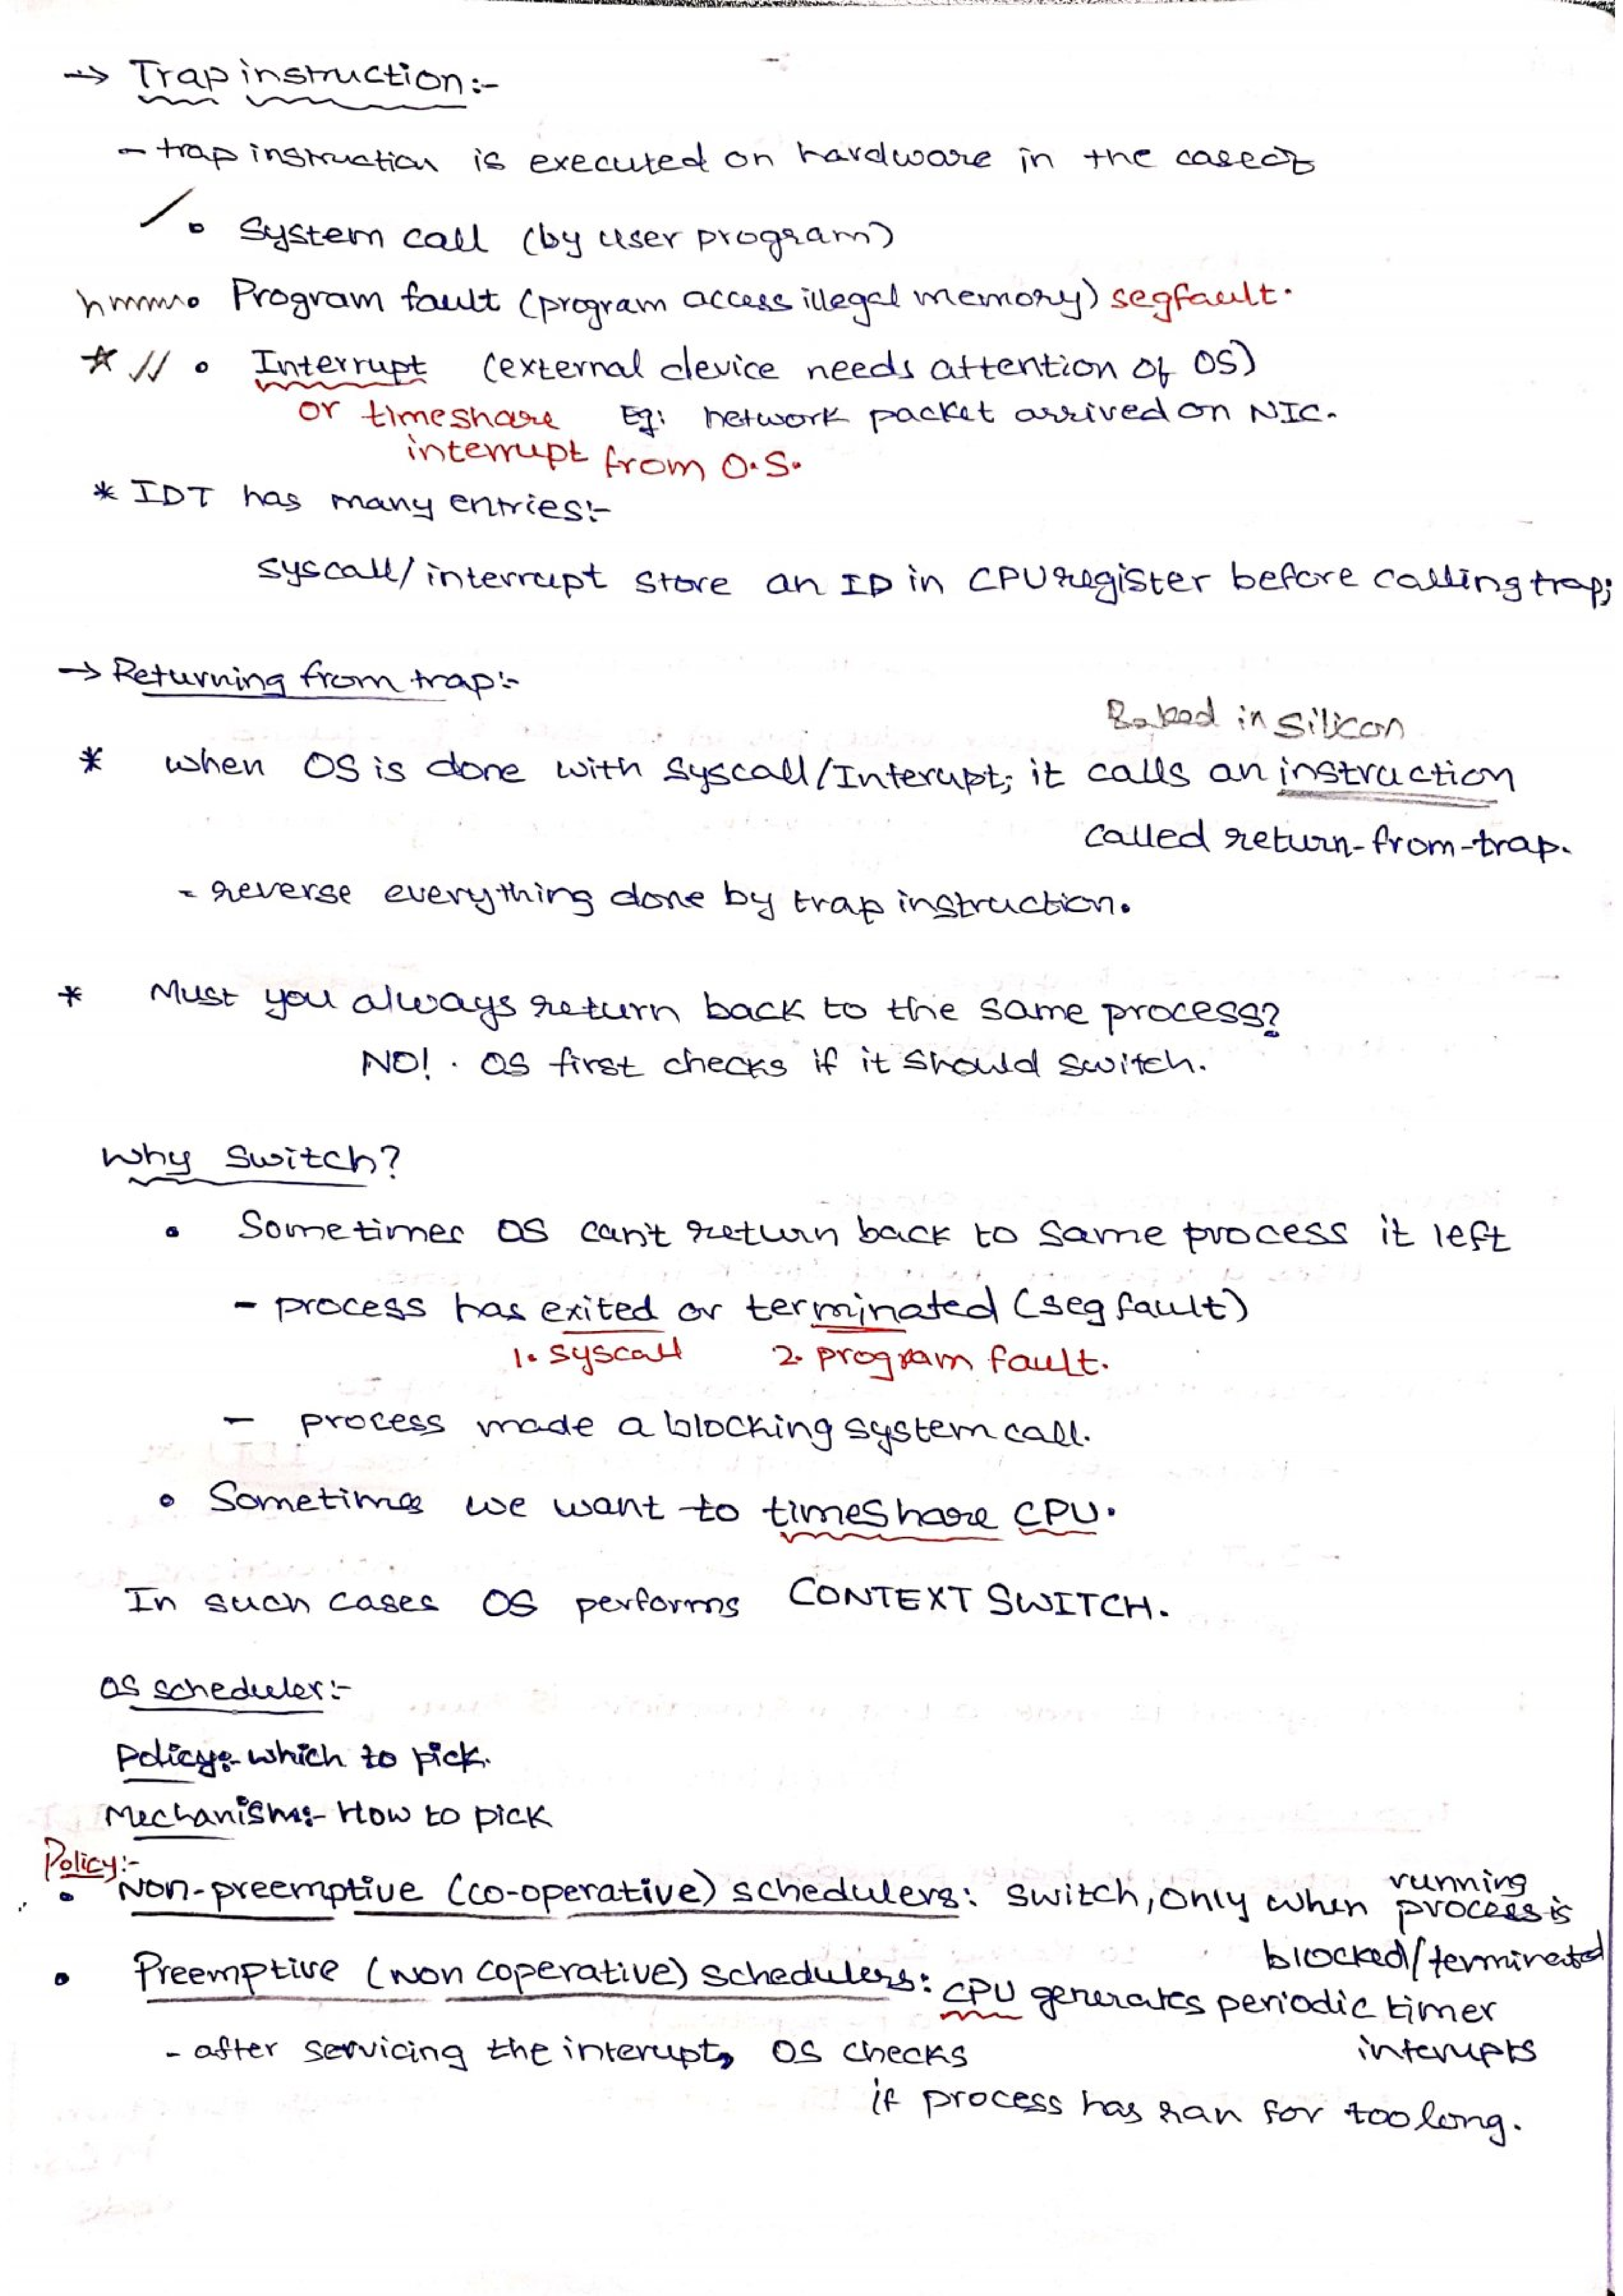 → Trap instruction:-
- trap instruction is executed on hardware in the case of
• System call (by user program)
hmmm • Program fault (program access illegal memory) segfault.
☆ // • Interrupt (external device needs attention of OS)
or timeshare Eg: network packet arrived on NIC.
interrupt from O.S.
* IDT has many entries:-
syscall/interrupt store an ID in CPU register before calling trap;
→ Returning from trap:-
Baked in silicon
* when OS is done with syscall/Interupt; it calls an instruction
called return-from-trap.
- reverse everything done by trap instruction.
* Must you always return back to the same process?
NO! . OS first checks if it should switch.
Why switch?
• Sometimes OS can't return back to same process it left
- process has exited or terminated (segfault)
1. syscall 2. program fault.
- process made a blocking system call.
• Sometimes we want to timeshare CPU.
In such cases OS performs CONTEXT SWITCH.
OS scheduler:-
Policy:- which to pick.
Mechanism:- How to pick
Policy:-
• Non-preemptive (co-operative) schedulers: switch, only when running process is
blocked/terminated
• Preemptive (non coperative) schedulers: CPU generates periodic timer
interupts
- after servicing the interupt, OS checks
if process has ran for too long.